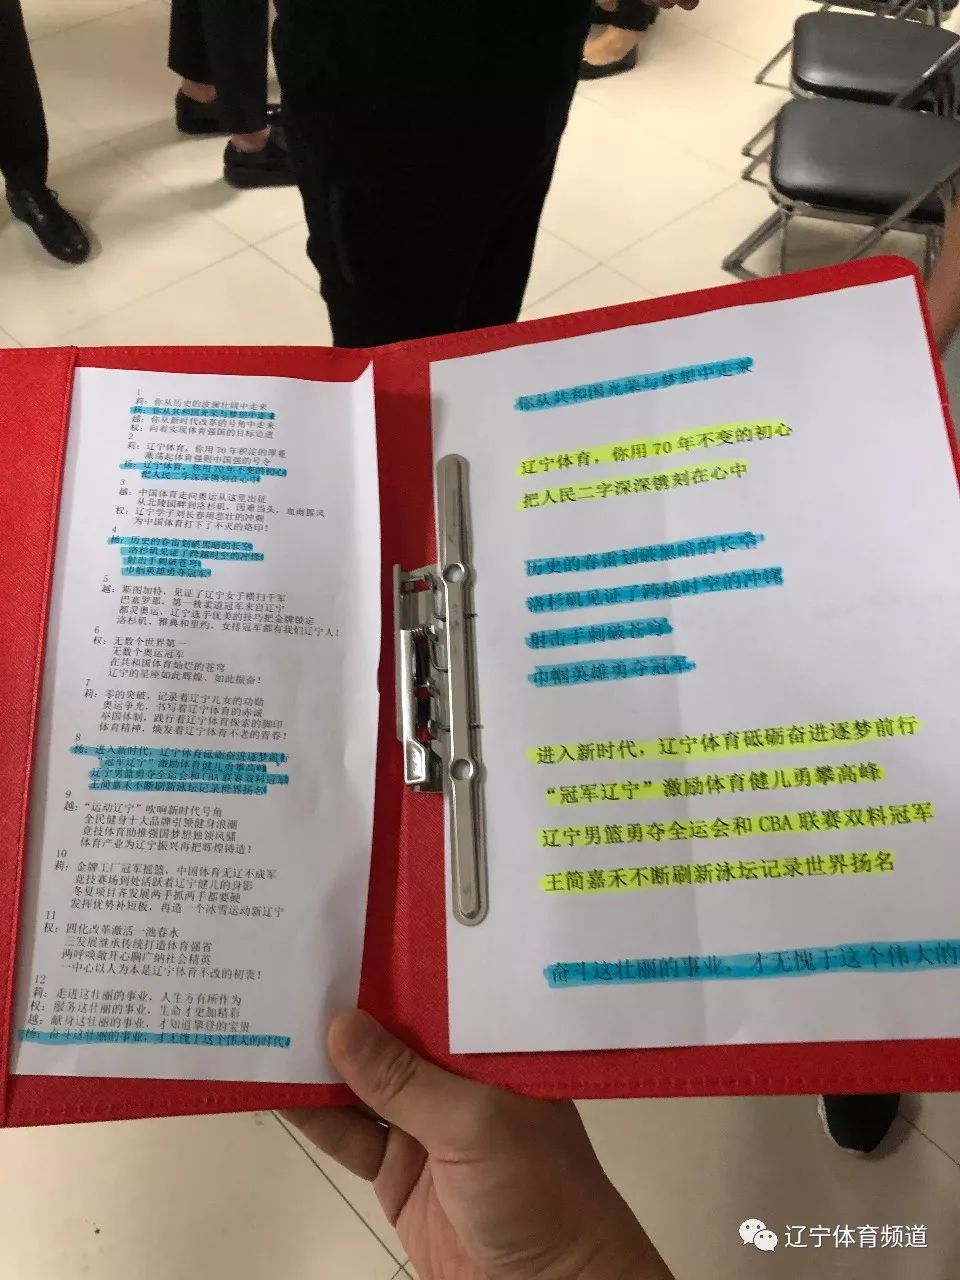 1
莉：你从历史的波澜壮阔中走来
杨：你从共和国光荣与梦想中走来
越：你从新时代改革的号角中走来
权：向着实现体育强国的目标迈进
2
莉：辽宁体育，你用70年积淀的厚重
激荡起体育强则中国强的号令
杨：辽宁体育，你用70年不变的初心
把人民二字深深镌刻在心中
3
越：中国体育走向奥运从这里出征
从北陵园畔到洛杉矶，国难当头，血雨腥风
权：辽宁学子刘长春用悲壮的冲刺
为中国体育打下了不灭的烙印！
4
杨：历史的春雷划破黑暗的长空
洛杉矶见证了跨越时空的冲锋
射击手刺破苍穹
巾帼英雄勇夺冠军
5
越：斯图加特，见证了辽宁女子横扫千军
巴塞罗那，第一枚柔道冠军来自辽宁
都灵奥运，辽宁选手优美的技巧把金牌锁定
洛杉矶、雅典和里约，女排冠军都有我们辽宁人！
6
权：无数个世界第一
无数个奥运冠军
在共和国体育灿烂的苍穹
辽宁的星座如此辉煌、如此振奋！
7
莉：零的突破，记录着辽宁儿女的功勋
奥运争光，书写着辽宁体育的赤诚
举国体制，践行着辽宁体育探索的脚印
体育精神，焕发着辽宁体育不老的青春！
8
杨：进入新时代，辽宁体育砥砺奋进逐梦前行
“冠军辽宁”激励体育健儿勇攀高峰
辽宁男篮勇夺全运会和CBA联赛双料冠军
王简嘉禾不断刷新泳坛记录世界扬名
9
越：“运动辽宁”吹响新时代号角
全民健身十大品牌引领健身浪潮
竞技体育助推强国梦想独领风骚
体育产业为辽宁振兴再把辉煌铸造！
10
莉：金牌工厂冠军摇篮，中国体育无辽不成军
竞技赛场到处活跃着辽宁健儿的身影
冬夏项目齐发展两手抓两手都要硬
发挥优势补短板，再造一个冰雪运动新辽宁
11
权：四化改革激活一池春水
三发展继承传统打造体育强省
两呼唤敞开心胸广纳社会精英
一中心以人为本是辽宁体育不改的初衷！
12
莉：走进这壮丽的事业，人生方有所作为
权：服务这壮丽的事业，生命才更加精彩
越：献身这壮丽的事业，才知道攀登的宝贵
杨：奋斗这壮丽的事业，才无愧于这个伟大的时代
你从共和国光荣与梦想中走来
辽宁体育，你用70年不变的初心
把人民二字深深镌刻在心中
历史的春雷划破黑暗的长空
洛杉矶见证了跨越时空的冲锋
射击手刺破苍穹
巾帼英雄勇夺冠军
进入新时代，辽宁体育砥砺奋进逐梦前行
“冠军辽宁”激励体育健儿勇攀高峰
辽宁男篮勇夺全运会和CBA联赛双料冠军
王简嘉禾不断刷新泳坛记录世界扬名
奋斗这壮丽的事业，才无愧于这个伟大的
辽宁体育频道